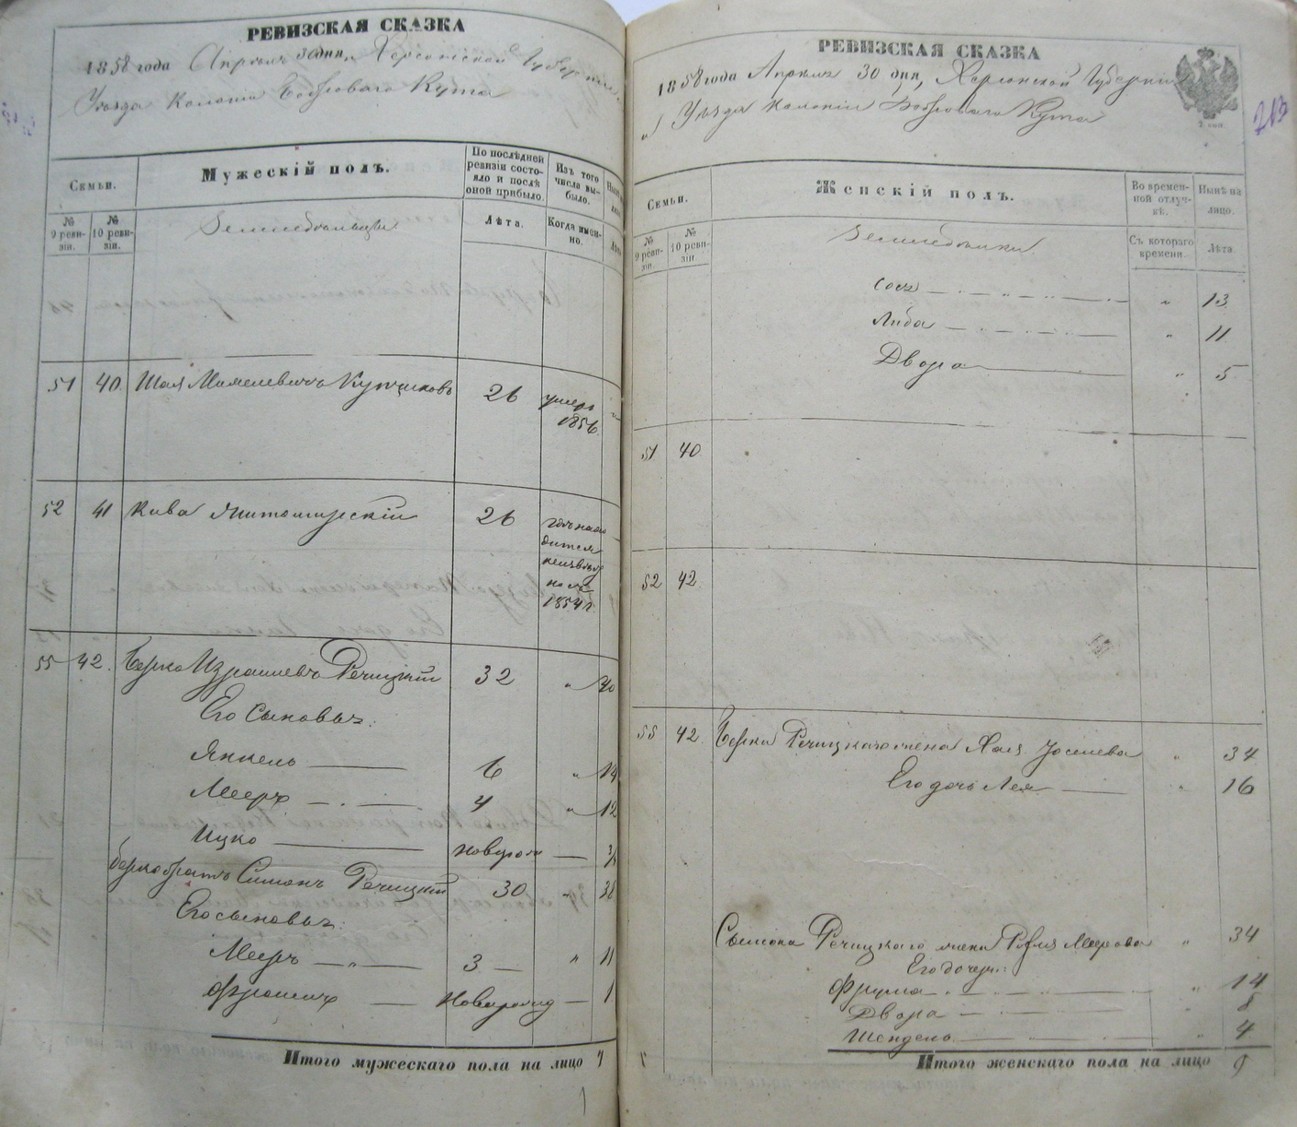 РЕВИЗСКАЯ СКАЗКА
1858 года Апреля 30 дня, Херсонской Губернии
Уезда Колонии Боброваго Кута
Семьи.
Мужескій полъ.
По послѣдней ревизіи состояло и послѣ оной прибыло.
Изъ того числа выбыло.
№ 9 ревизіи.
№ 10 ревизіи.
Земледельцы
Лѣта.
Когда именно.
51 40 Шая Михелевичъ Купчиковъ 26 умеръ 1856
52 41 Кива Житомирскій 26 1854 г.
55 42. Берко Израилевъ Речицкій 32 „ 40
Его сыновья:
Янкель 6 „ 14
Мееръ 4 „ 12
Ицко новорож
Берко братъ Симонъ Речицкій 30 „ 38
Его сыновья:
Мееръ 3 „ 11
Фроимъ Новорожд 1
Итого мужескаго пола на лицо 7
РЕВИЗСКАЯ СКАЗКА
1858 года Апреля 30 дня, Херсонской Губерніи
„ Уезда Колоніи Боброваго Кута
213
Семьи.
Женскій полъ.
Во временной отлучкѣ.
Нынѣ на лицо.
№ 9 ревизіи.
№ 10 ревизіи.
Съ котораго времени.
Лѣта.
Сося „ 13
Либа „ 11
Двора „ 5
51 40
52 42
55 42. Берки Речицкаго жена Хая Иоселева „ 34
Его дочь Лея „ 16
Симона Речицкаго жена Меерова „ 34
Его дочери:
Фрума „ 14
Двора „ 8
Шендель „ 4
Итого женскаго пола на лицо 9